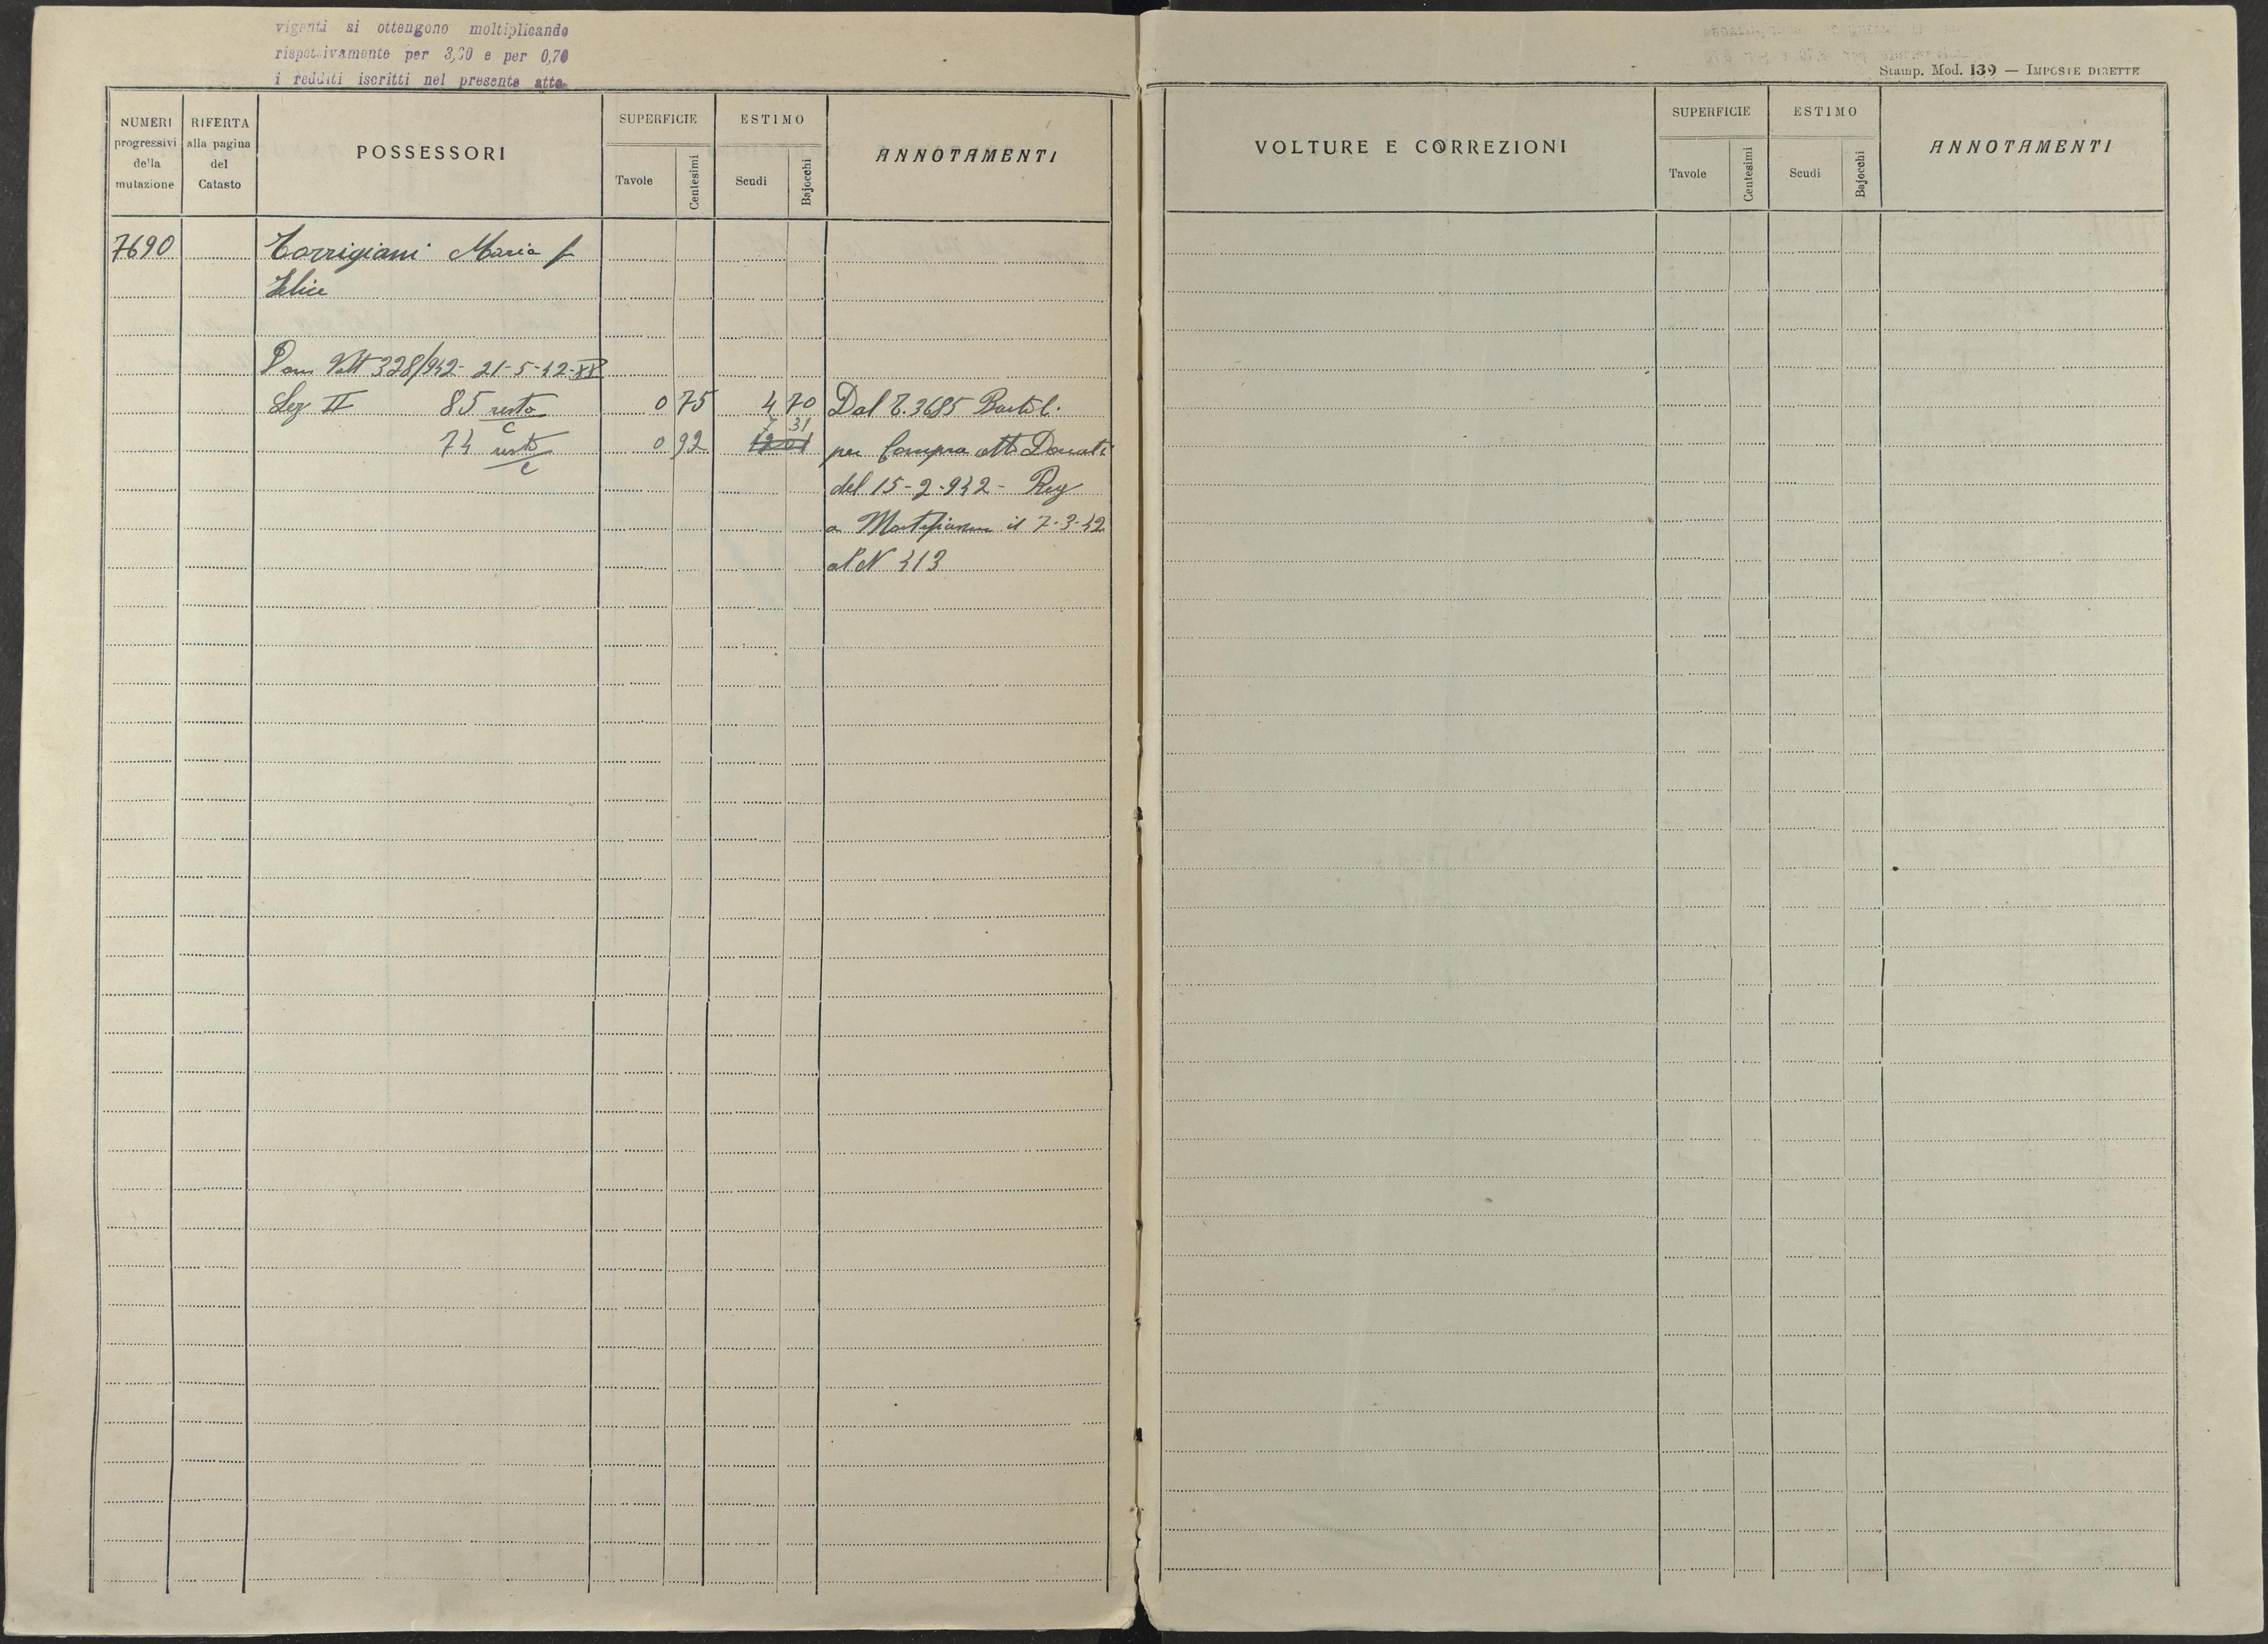 viganti si ottengono moltiplicando
rispettivamente per 3,30 e per 0,70
i redditi iscritti nel presente atto
NUMERI progressivi della mutazione
RIFERTA alla pagina del Catasto
POSSESSORI
SUPERFICIE
Tavole
Centesimi
ESTIMO
Scudi
Bajocchi
ANNOTAMENTI
7690 Torrigiani Maria f
Felice
Volt 328/942 - 21-5-42-XX
Sez II 85 resto/c 0 75 4 70 Dal T. 3685 Bartol.
7 31
74 resto/c 0 92 per Compra atto Donati
del 15-2-942 - Reg
a il 7-3-42
al N 413
Stamp. Mod. 139 — IMPOSTE DIRETTE
VOLTURE E CORREZIONI
SUPERFICIE
Tavole
Centesimi
ESTIMO
Scudi
Bajocchi
ANNOTAMENTI